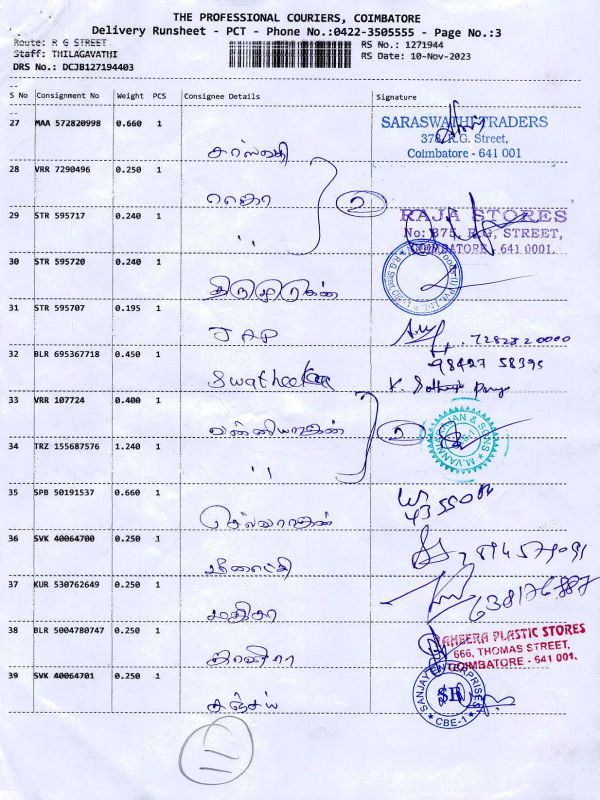 THE PROFESSIONAL COURIERS, COIMBATORE
Delivery Runsheet - PCT - Phone No.:0422-3505555 - Page No.:3
Route: R G STREET
RS No.: 1271944
Staff: THILAGAVATHI
RS Date: 10-Nov-2023
DRS No.: DCJB127194403
S No Consignment No Weight PCS Consignee Details Signature
27 MAA 572820998 0.660 1
சரஸ்வதி
SARASWATHI TRADERS
378, R.G. Street,
Coimbatore - 641 001
28 VRR 7290496 0.250 1
ராஜா
2
29 STR 595717 0.240 1
,,
RAJA STORES
No: 375, R.G. STREET,
COIMBATORE - 641 0001.
30 STR 595720 0.240 1
31 STR 595707 0.195 1
JAP
7282820000
32 BLR 695367718 0.450 1
98427 58395
33 VRR 107724 0.400 1
2
34 TRZ 155687576 1.240 1
,,
35 SPB 50191537 0.660 1
செல்வராகன்
36 SVK 40064700 0.250 1
மீனாட்சி
37 KUR 530762649 0.250 1
38 BLR 5004780747 0.250 1
RAHEERA PLASTIC STORES
666, THOMAS STREET,
COIMBATORE - 641 001.
39 SVK 40064701 0.250 1
சஞ்சய்
SANJAY ENTERPRISES
SE
CBE-1
11